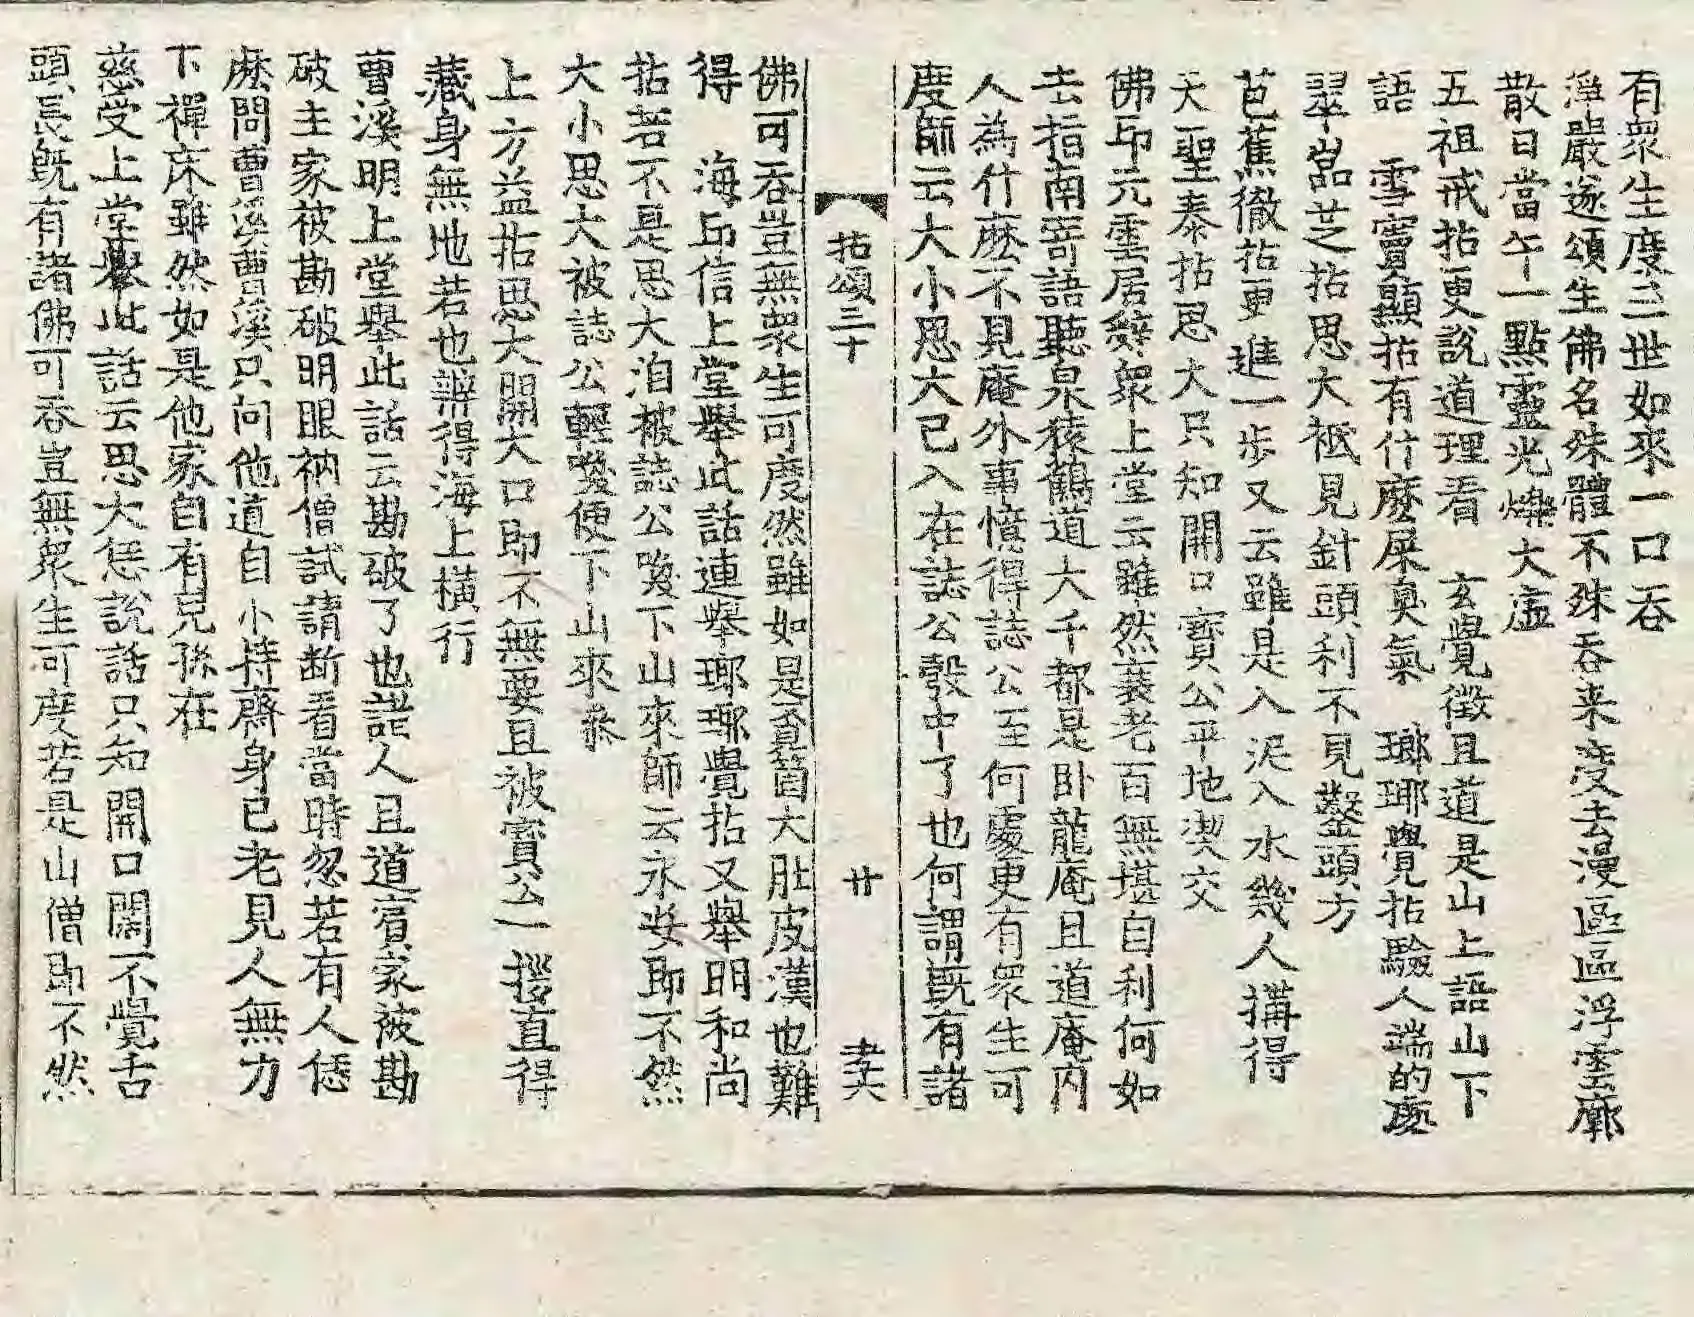 有衆生度三世如來一口吞
淨嚴遂頌生佛名殊體不殊吞来度去漫區區浮雲廓
散日當午一點靈光爍大虛
五祖戒拈更說道理看　玄覺徵且道是山上語山下
語　雪竇顯拈有什麽屎臭氣　瑯瑘覺拈驗人端的處
翠嵓芝拈思大祗見針頭利不見鑿頭方
芭蕉徹拈更進一步又云雖是入泥入水幾人搆得
天聖泰拈思大只知開口寶公平地喫交
佛印元雲居辭衆上堂云雖然蓑老百無堪自利何如
去指南寄語聽泉猿鶴道大千都是卧龍庵且道庵内
人為什麽不見庵外事憶得誌公至何處更有衆生可
度師云大小思大已入在誌公彀中了也何謂旣有諸
拈頌三十　廿　孝大
佛可吞豈無衆生可度然雖如是貪箇大肚皮漢也難
得　海印信上堂舉此話連舉瑯瑘覺拈又舉明和尚
拈若不是思大洎被誌公喚下山來師云永安即不然
大小思大被誌公輕喚便下山來叅
上方益拈思大開大口即不無要且被寶公一拶直得
藏身無地若也辨得海上橫行
曹溪明上堂舉此話云勘破了也諸人且道賓家被勘
破主家被勘破明眼衲僧試請断看當時忽若有人恁
麽問曹溪曹溪只向他道自小持齋身已老見人無力
下禪床雖然如是他家自有兒孫在
慈受上堂舉此話云思大恁說話只知開口闊不覺舌
頭長旣有諸佛可吞豈無衆生可度若是山僧即不然